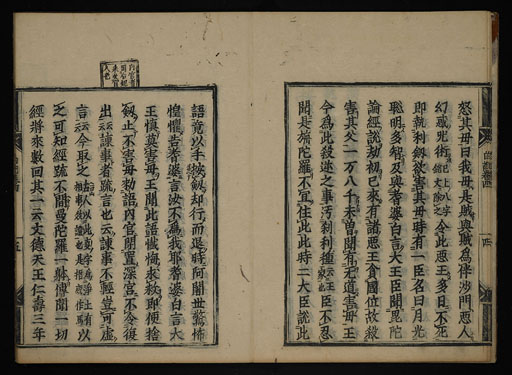 怒其母曰我母是賊與賊為伴沙門惡人
幻惑咒術令此惡王多日不死
即執利劔欲害其母時有一臣名曰月光
聰明多智及與耆婆白言大王臣聞毘陀
論經說劫初已來有諸惡王貪國位故殺
害其父一万八千未曾聞有無道害母王
今為此殺逆之事汚刹利種臣不忍
聞是旃陀羅不宜住此此時二大臣說此
語竟以手按劔却行而退時阿闍世驚怖
惶懼告耆婆言汝不為我耶耆婆白言大
王慎莫害母王聞此語懺悔求救即便捨
劔止不害母勅語内官閉置深宮不令復
出云云諫事者䟽言也云諫事不輕豈可虛
言云云今取之
之可知經䟽不曼陀羅一躰傳聞一切
經將來數回其一云文德天王仁壽三年